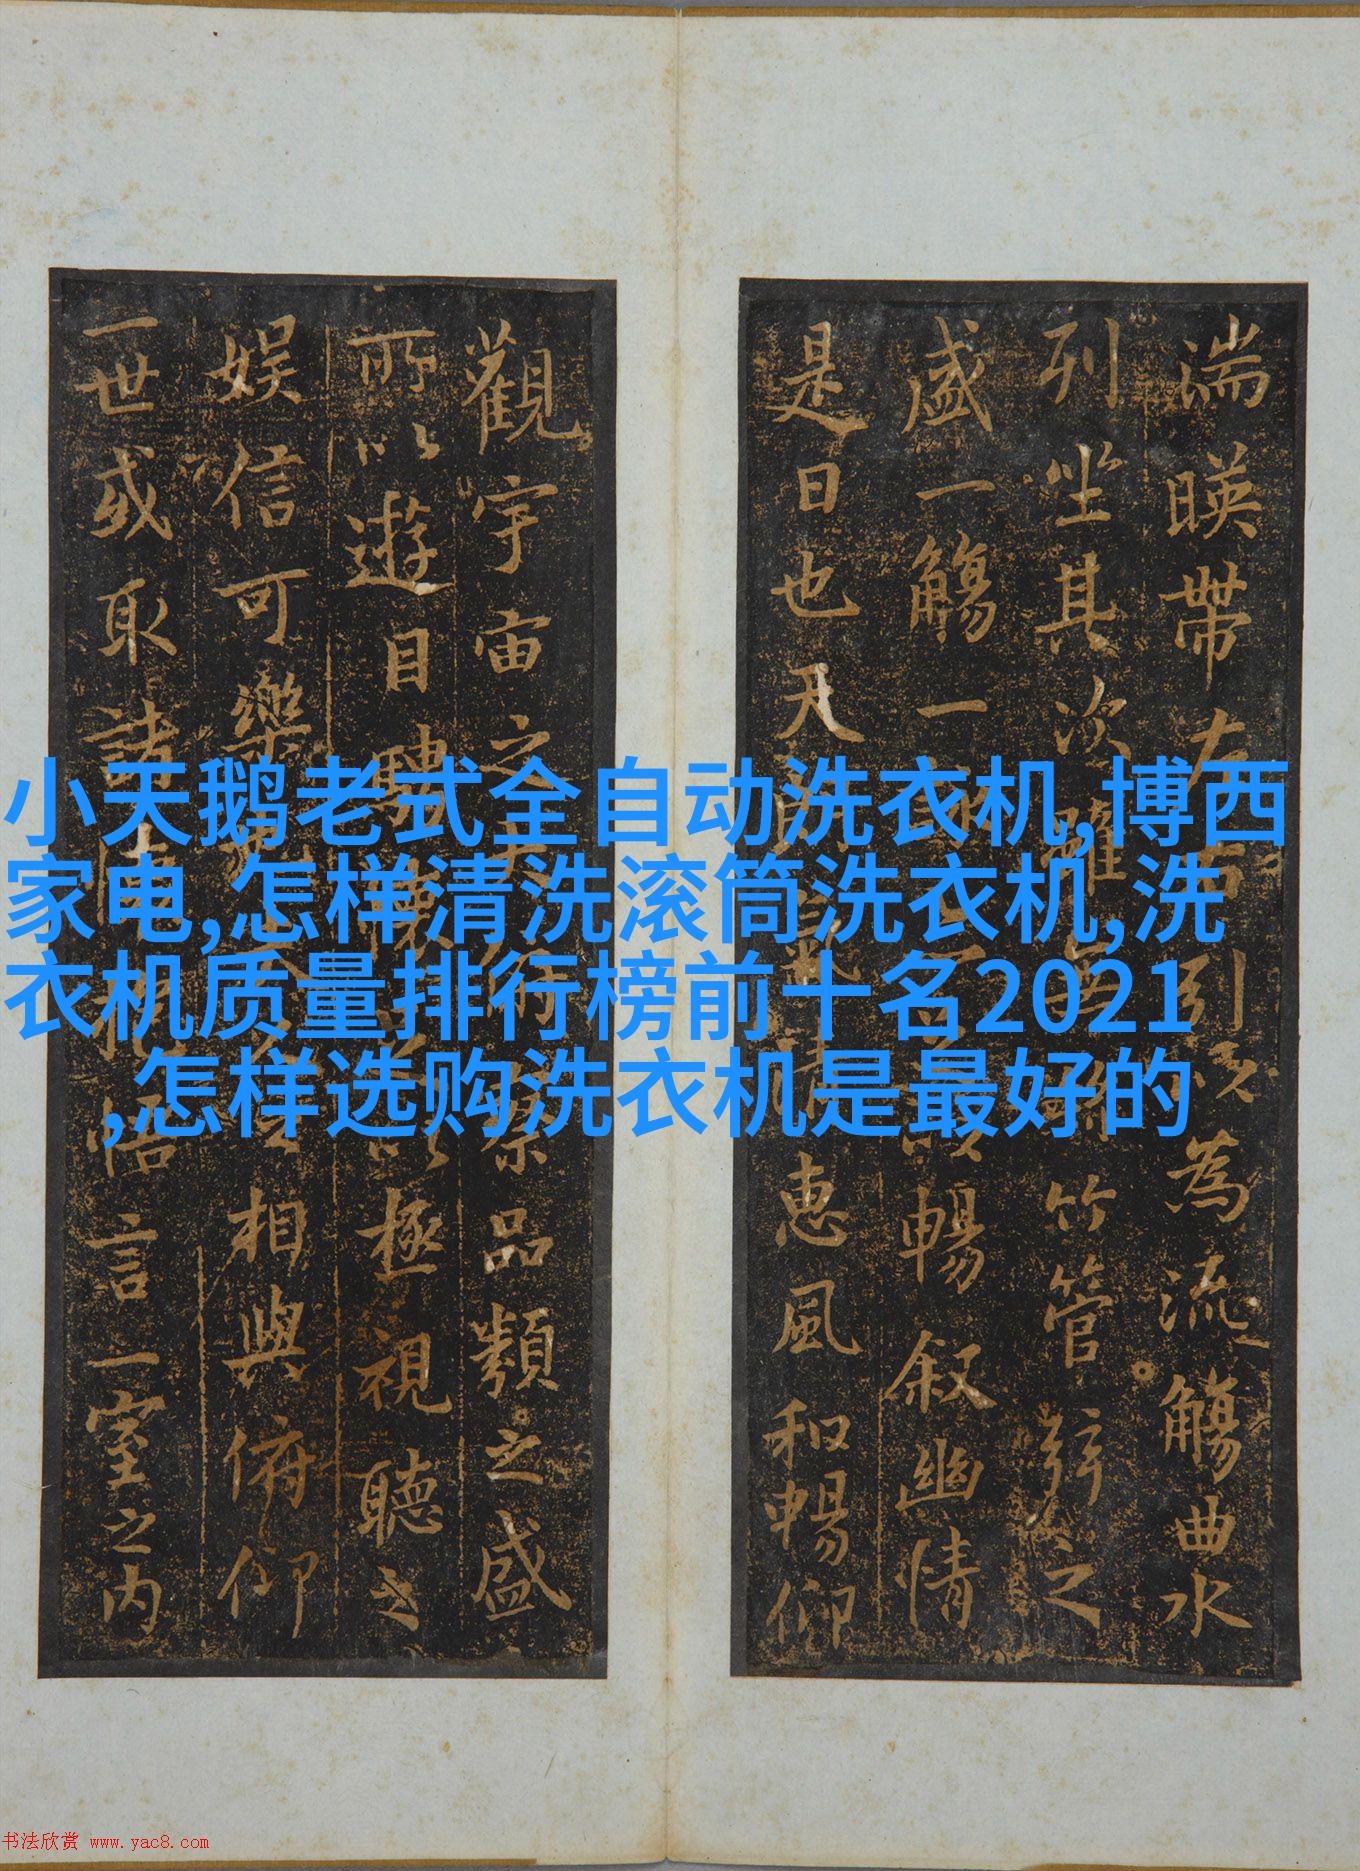 湍暎帶左引以為流觴曲水
列坐其次雖竹管弦之
盛一觴一暢叙幽情
是日也天惠風和暢仰
觀宇宙之品類之盛
所以遊目騁極視聽之
娱信可樂相與俯仰
一世或取諸悟言一室之内
小天鹅老式全自动洗衣机,博西
家电,怎样清洗滚筒洗衣机,洗
衣机质量排行榜前十名2021
,怎样选购洗衣机是最好的
书法欣赏 www.yac8.com